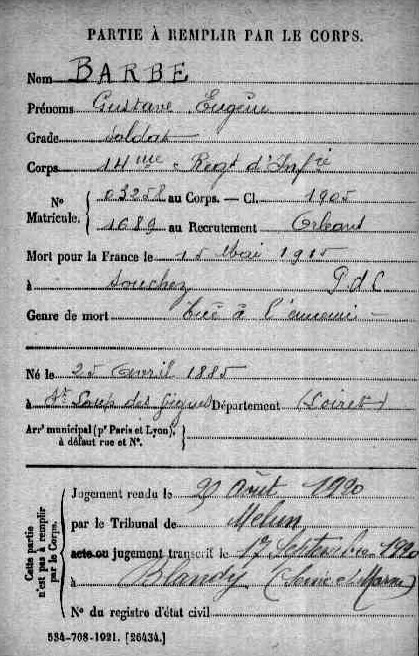 PARTIE À REMPLIR PAR LE CORPS.
Nom BARBE
Prénoms Gustave Eugène
Grade soldat
Corps 14me Regt d'Infie
No Matricule. 03258 au Corps. — Cl. 1905
1689 au Recrutement Orléans
Mort pour la France le 15 Mai 1915
à Souchez P.d.C
Genre de mort tué à l'ennemi
Né le 25 avril 1885
à St Loup des Vignes Département (Loiret)
Arrt municipal (pr Paris et Lyon),
à défaut rue et No.
Cette partie
n'est pas à remplir
par le Corps.
Jugement rendu le Août 1920
par le Tribunal de Melun
acte ou jugement transcrit le 17 Septembre 1920
à Blandy (Seine et Marne)
No du registre d'état civil
534-708-1921. [26434.]